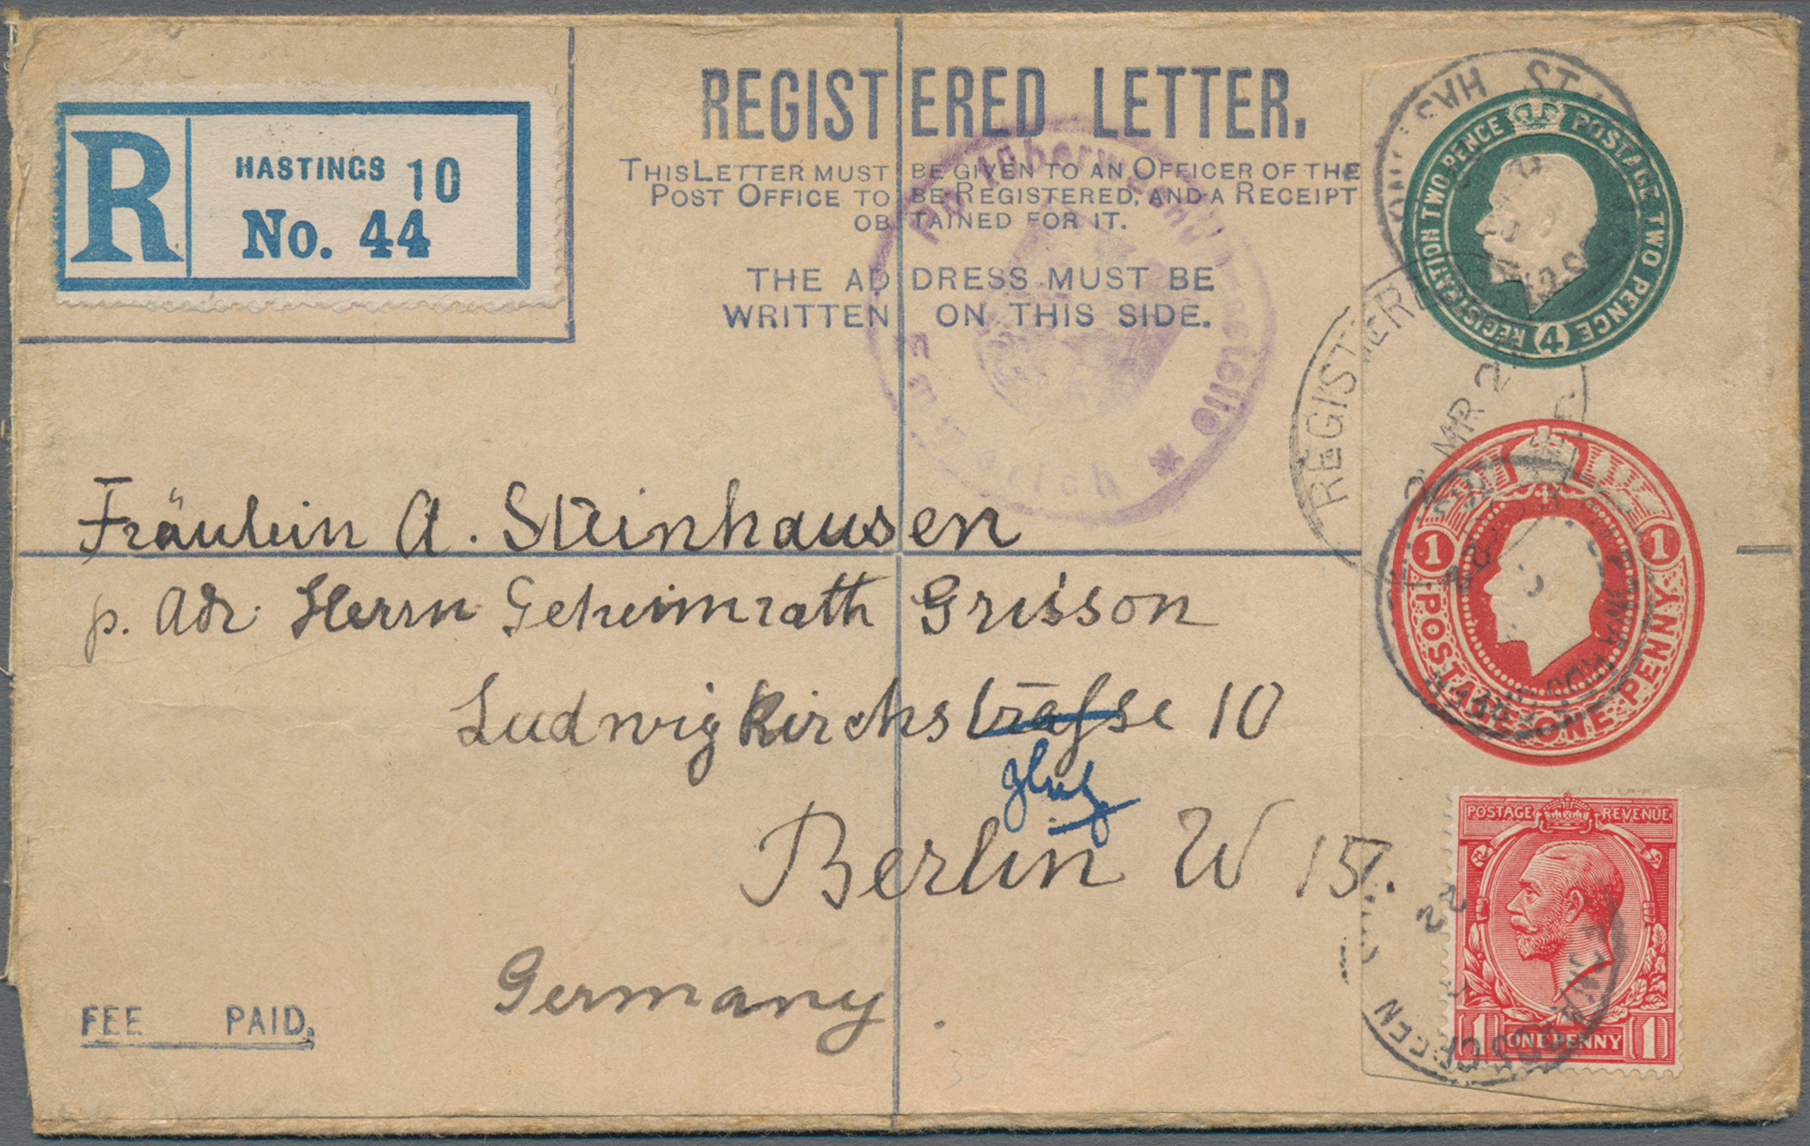 REGISTERED LETTER.
THIS LETTER MUST BE GIVEN TO AN OFFICER OF THE
POST OFFICE TO BE REGISTERED, AND A RECEIPT
OBTAINED FOR IT.
THE ADDRESS MUST BE
WRITTEN ON THIS SIDE.
R
HASTINGS 10
No. 44
REGISTRATION TWO PENCE POSTAGE TWO PENCE
4
REGISTERED
MR 2
1 1
POSTAGE ONE PENNY
Emmerich *
Fräulein A. Steinhausen
p. Adr. Herrn Geheimrath Grisson
Ludwigkirchstraſse 10
Berlin W 15.
Germany
POSTAGE REVENUE
1 ONE PENNY 1
22
FEE PAID.